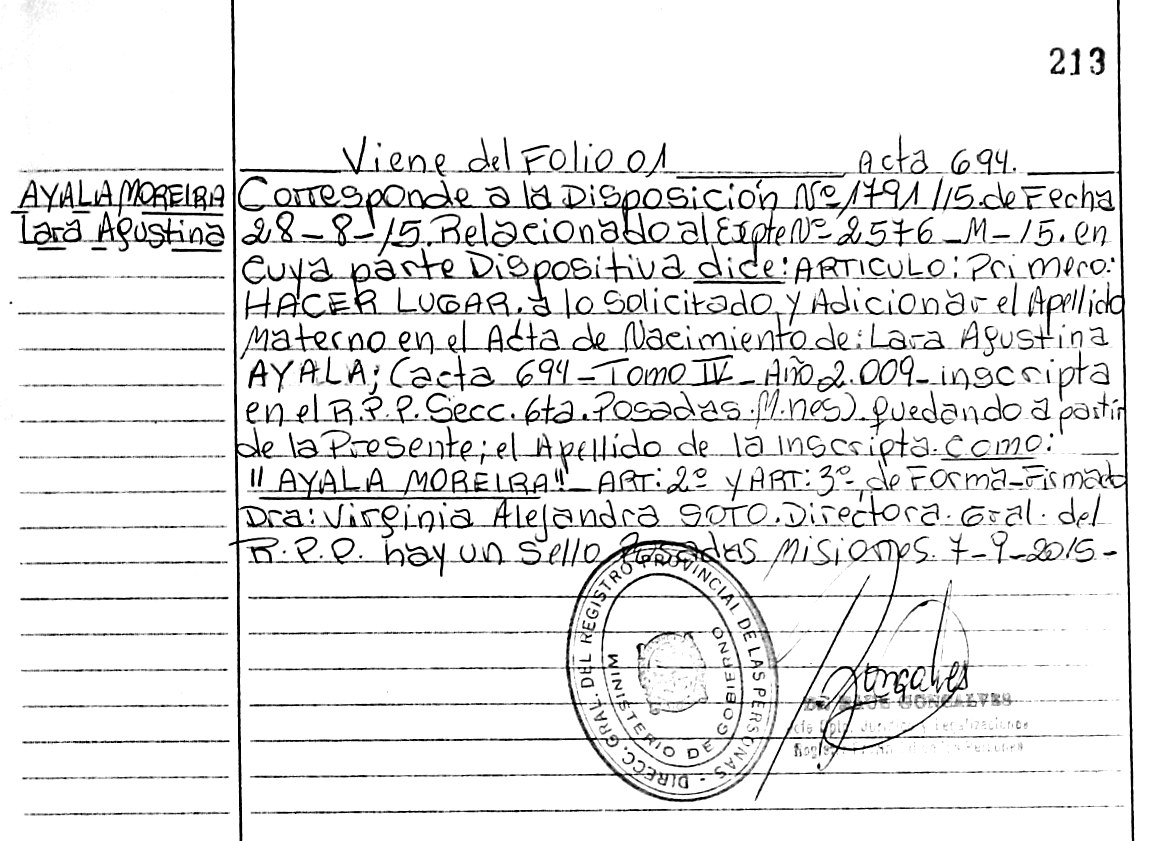 213
Viene del Folio 01 Acta 694.
AYALA MOREIRA
Lara Agustina
Corresponde a la Disposición Nº 1791/15. de Fecha
28-8-15. Relacionado al Expte Nº 2576-M-15. en
cuya parte Dispositiva dice: ARTICULO: Primero:
HACER LUGAR. a lo Solicitado, y Adicionar el Apellido
Materno en el Acta de Nacimiento de: Lara Agustina
AYALA; (acta 694-Tomo IV-Año 2.009-inscripta
en el R.P.P. Secc. 6ta. Posadas. M.nes). quedando a partir
de la Presente; el Apellido de la inscripta. como:
"AYALA MOREIRA"- ART: 2º y ART: 3º, de Forma-Firmado
Dra: Virginia Alejandra SOTO. Directora. Gral. del
R.P.P. hay un Sello Posadas Misiones. 7-9-2015-
DIRECC. GRAL. DEL REGISTRO PROVINCIAL DE LAS PERSONAS -
MINISTERIO DE GOBIERNO
Gonçalves
GONCALVES